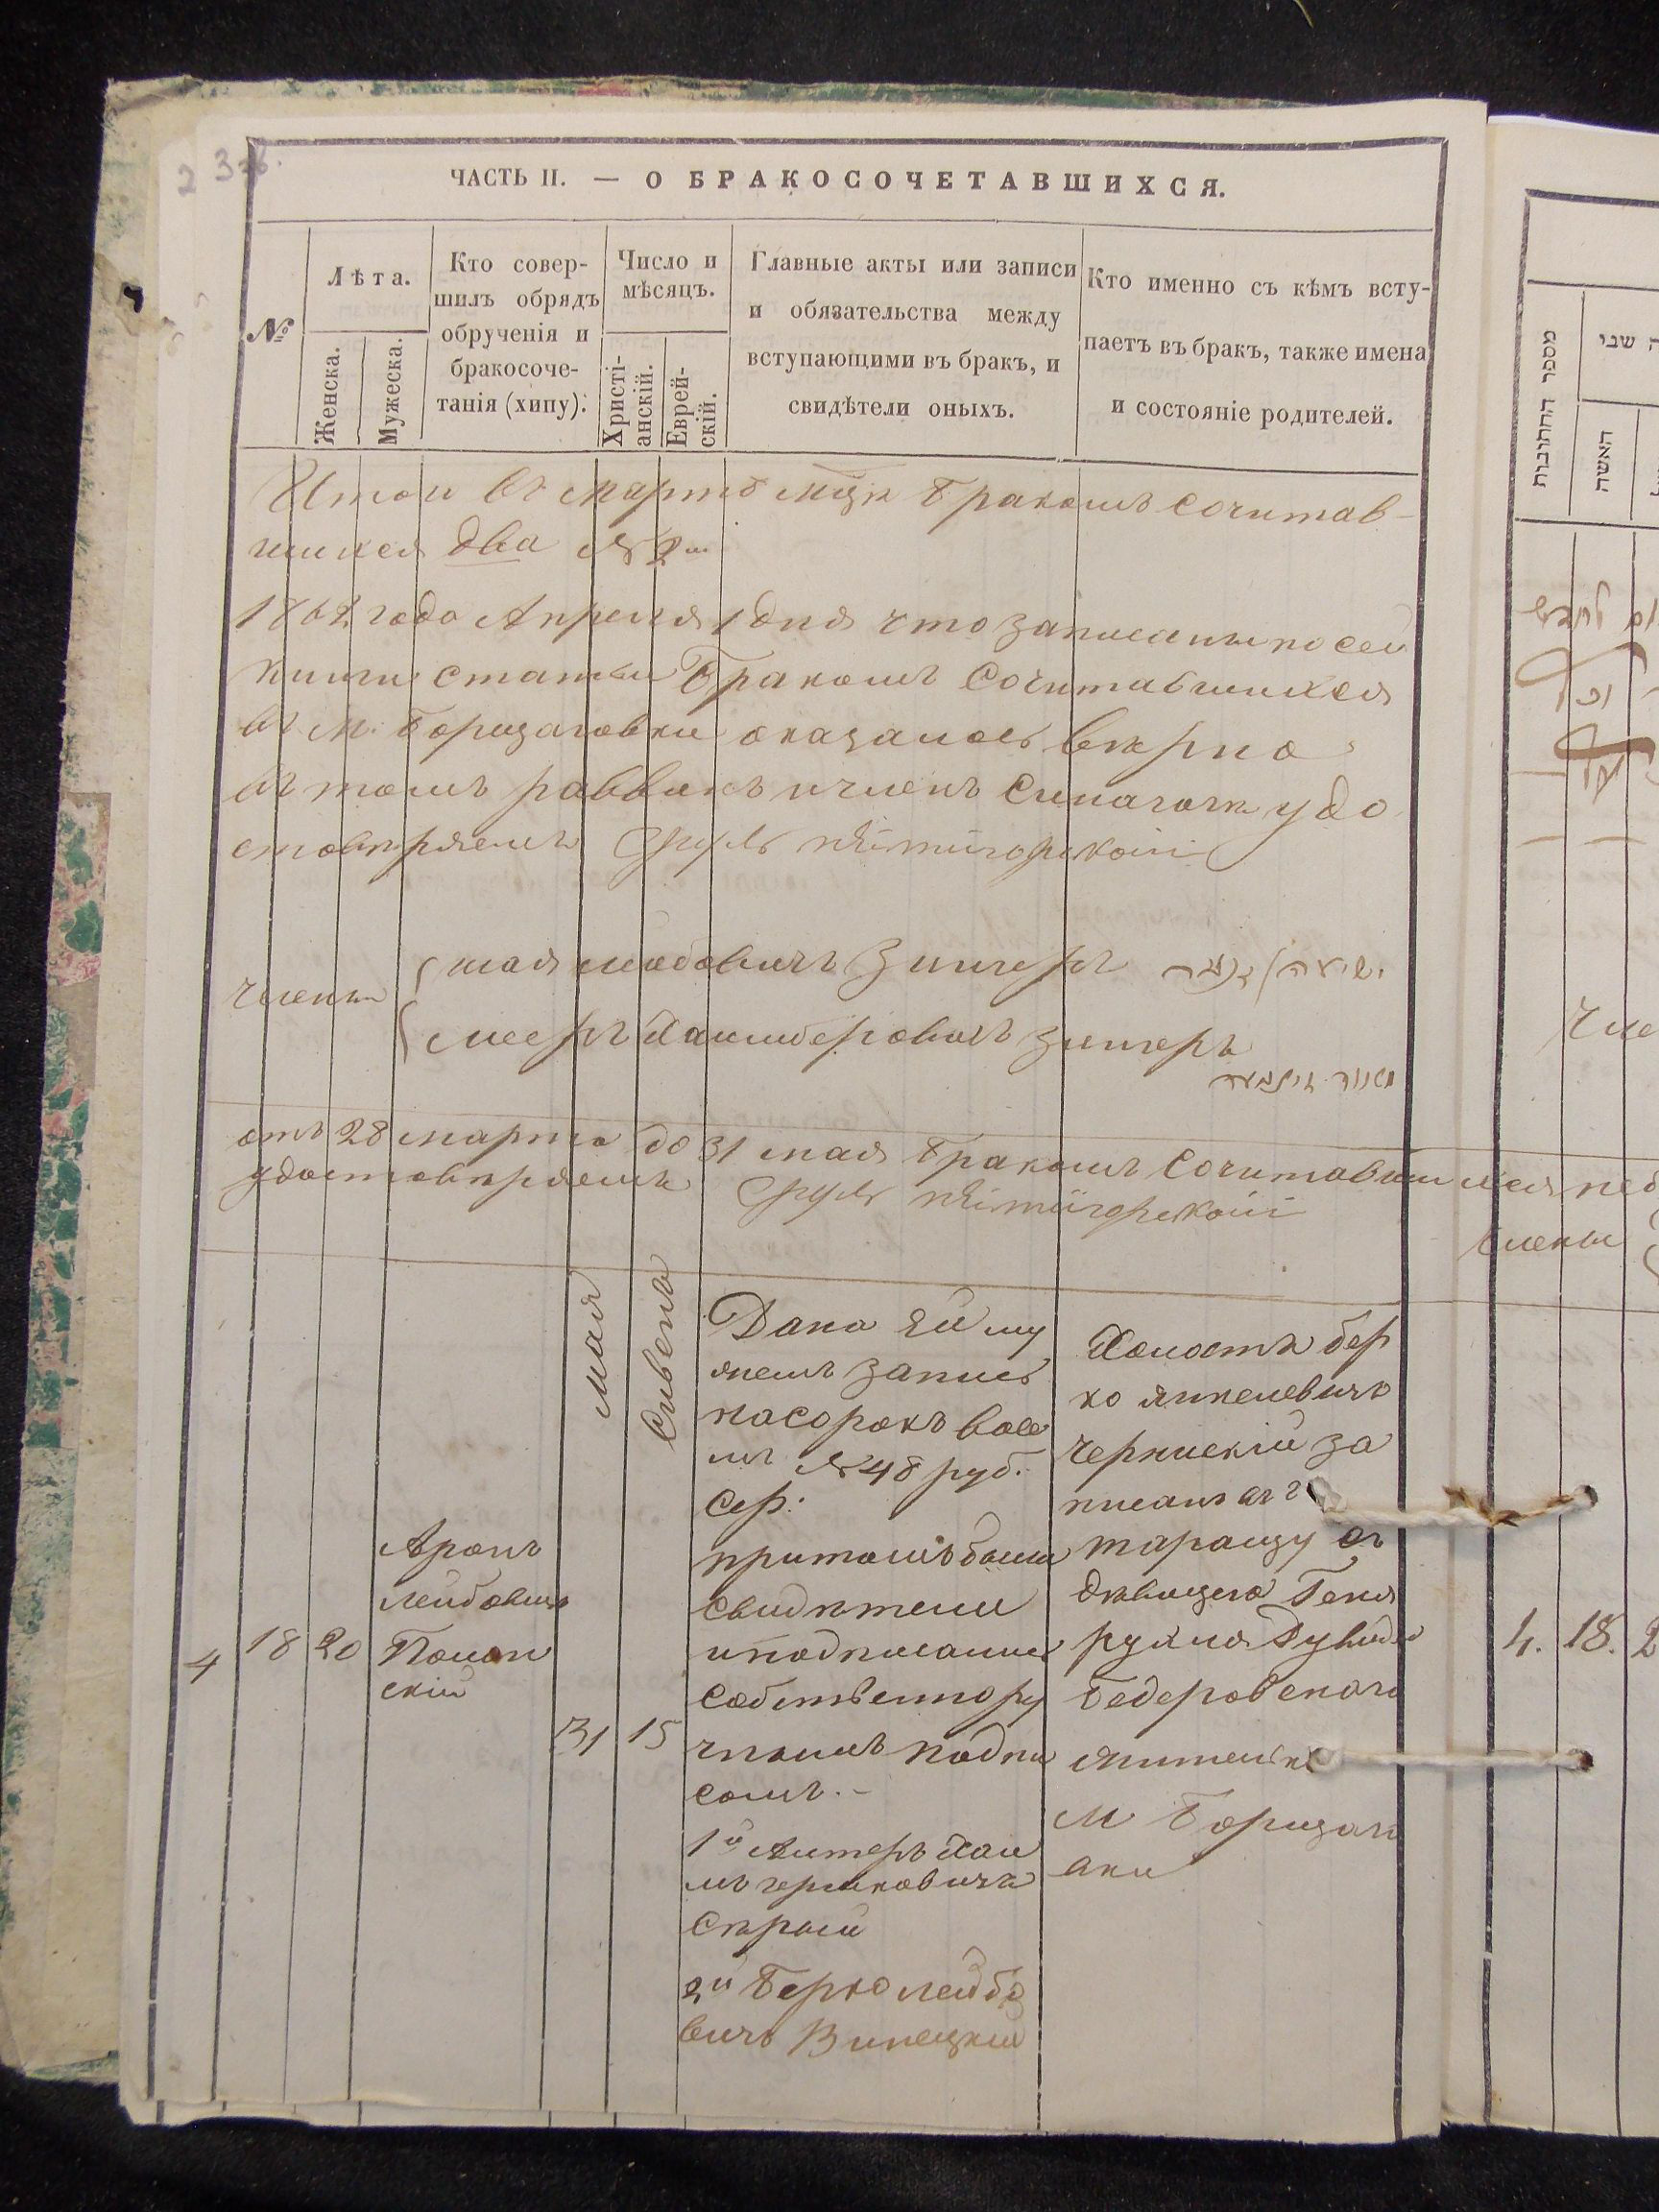 ЧАСТЬ II. — О БРАКОСОЧЕТАВШИХСЯ.
№
Лѣта.
Женска.
Мужеска.
Кто совер-
шилъ обрядъ
обрученія и
бракосоче-
танія (хипу).
Число и
мѣсяцъ.
Христі-
анскій.
Еврей-
скій.
Главные акты или записи
и обязательства между
вступающими въ бракъ, и
свидѣтели оныхъ.
Кто именно съ кѣмъ всту-
паетъ въ бракъ, также имена
и состояніе родителей.
Итого въ мартѣ мцѣ бракомъ сочитав-
шихся два № 2
186 года Апреля 1 дня что записаны по сей
книги статьи Бракомъ Сочитавшихся
въ м. Борщаговки оказалось вѣрно
въ томъ раввинъ и членъ Синагоги удо
стовѣряемъ
члены
шая лейбовичъ зингеръ
мееръ Хаимберовичъ зингеръ
отъ 28 марта до 31 мая бракомъ Сочитавшихся не б
удостовѣряемъ
члены
4
18
20
Аронъ
лейбовичъ
Полон
скій
Мая
31
Сивень
15
Дана
запись
на сорокъ восе
мъ № 48 руб.
Сер:
притомъ были
свидѣтели
и подписались
собственнору
чнымъ подпи
сомъ. –
1й Литеръ Хаи
мъ гершковичъ
Сѣрый
2й Берко лейбо
вичъ Винецкій
Холостъ бер
ко янкелевичъ
чернискій за
писанъ въ г
таращу съ
дѣвицею Геня
рухля Дувидъ
Бедеровскаго
жители
м Борщаго
вки
מספר החתונות
האשה
שני
4. 18. 2